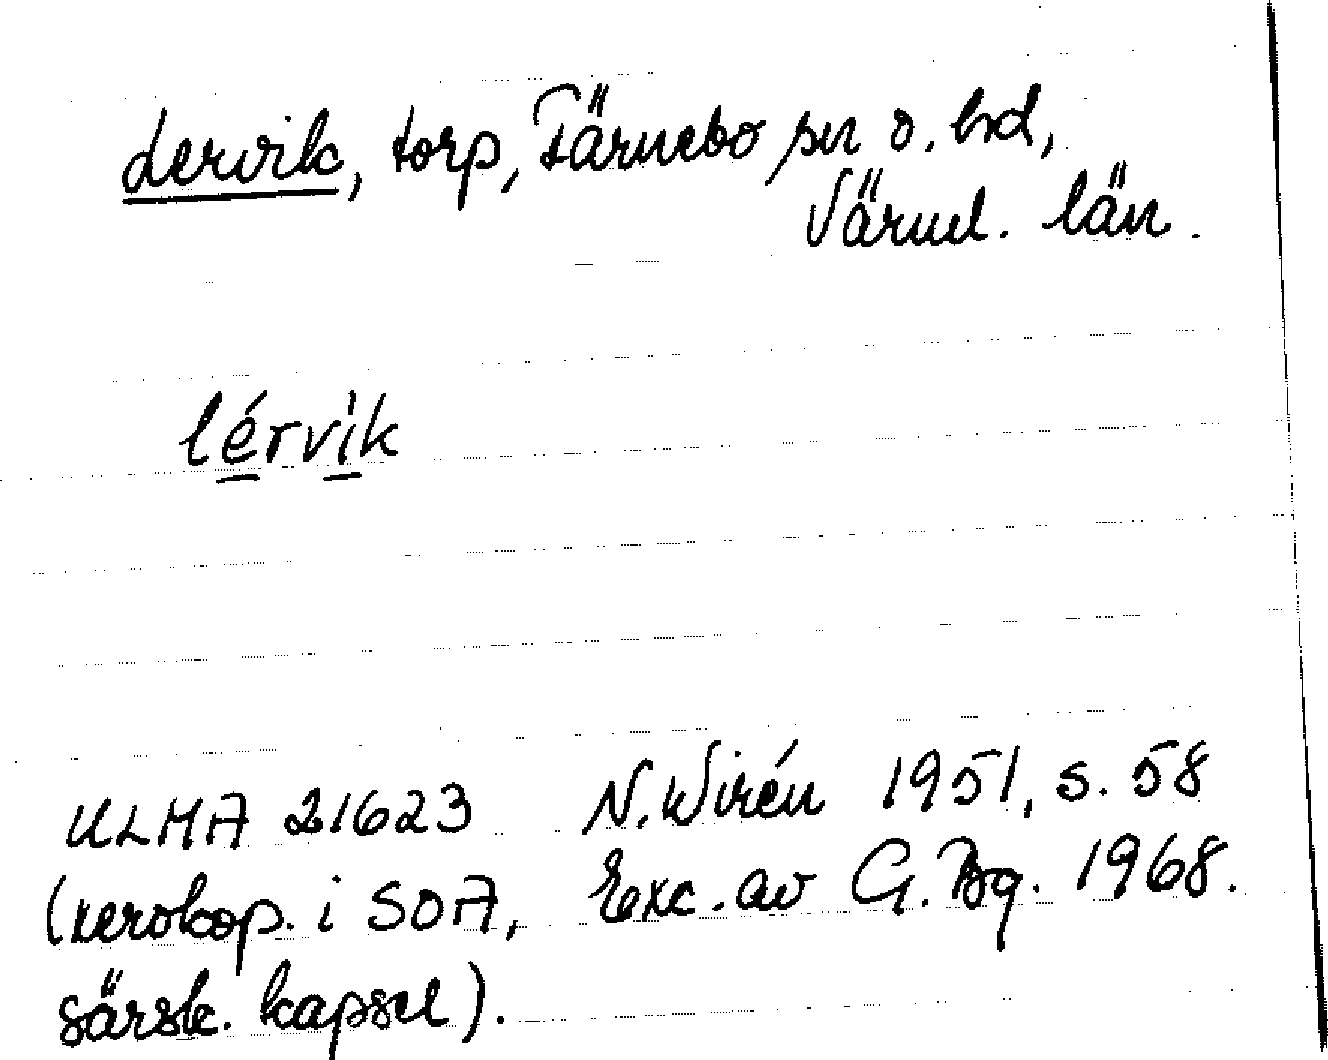 Lervik, torp, Färnebo sn o. hd,
Värml. län.
lérvìk
ULMA 21623 N. Wirén 1951, s. 58
(xerokop. i SOA, Exc. av G. Bg. 1968.
särsk. kapsel).